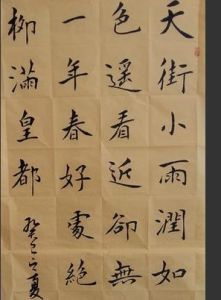 天街小雨潤如
色遙看近卻無
一年春好處絕
柳滿皇都
癸巳之夏